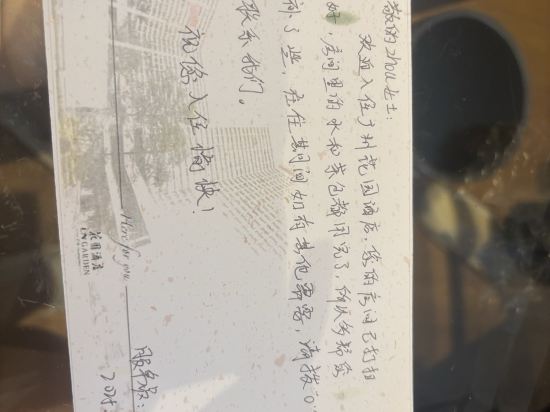 敬的zhou女士:
欢迎入住广州花园酒店,您的房间已打扫
好,房间里的水和茶包都用完了,所以多帮您
补了些,在住期间如有其他需要,请拨0
联系我们。
祝您入住愉快!
服务员:
花園酒店
EN GARDEN